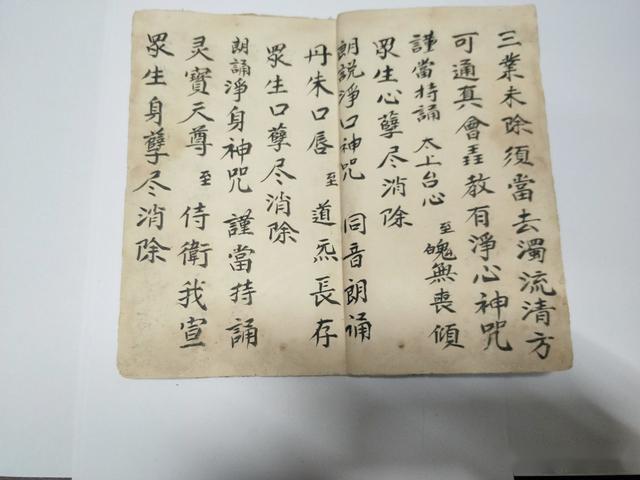 三業未除須當去濁流清方
可通真會𦤎教有淨心神咒
謹當持誦 太上台心 至 魄無喪傾
眾生心孽尽消除
朗説淨口神咒 同音朗诵
丹朱口唇 至 道炁長存
眾生口孽尽消除
朗誦淨身神咒 謹當持誦
灵寶天尊 至 侍衛我宣
眾生身孽尽消除